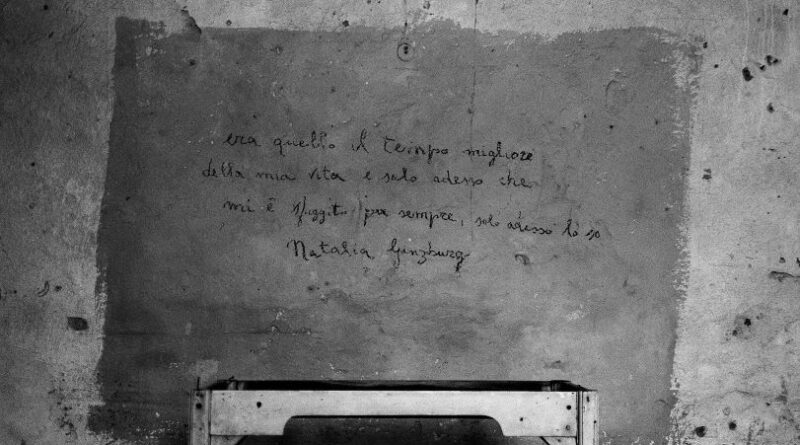 era quello il tempo migliore
della mia vita e solo adesso che
mi è sfuggito per sempre, solo adesso lo so
Natalia Ginzburg